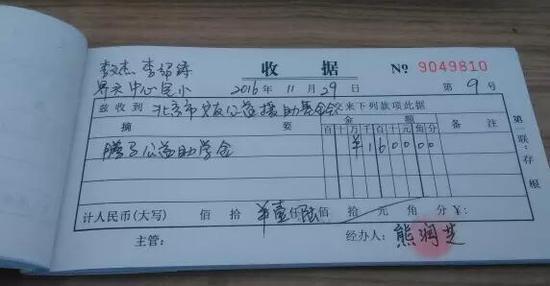 收据 № 9049810
界头中心完小 2016 年 11 月 29 日 第 9 号
兹收到 北京市 公益援助基金会 交来下列款项此据
摘要 金额 备注
百 十 万 千 百 十 元 角 分
腾子公益助学金 ¥ 1 6 0 0 0 0
计人民币(大写) 佰 拾 ¥壹仟陆佰 拾 元 角 分 ¥:
主管: 经办人: 熊润芝
第一联:存根